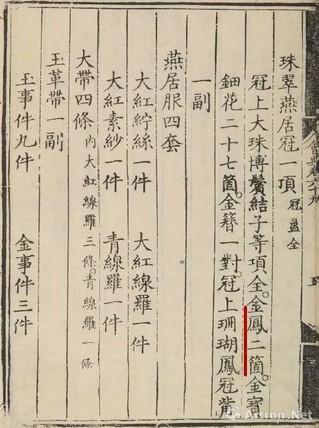 珠翠燕居冠一頂冠盝全
冠上大珠博鬢結子等項全。金鳳二箇。金寶
鈿花二十七箇。金簪一對。冠上珊瑚鳳冠觜
一副
燕居服四套
大紅紵絲一件 大紅線羅一件
大紅素紗一件 青線羅一件
大帶四條內大紅線羅三條。青線羅一條
玉革帶一副
玉事件九件 金事件三件
Artron.Net